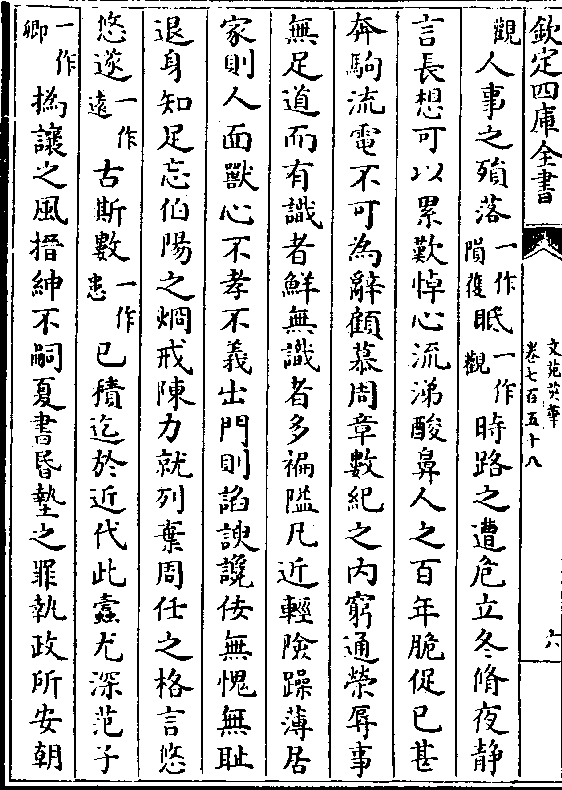 欽定四庫全書
文苑英華
卷七百五十八
六
觀人事之殞落一作隕復眠一作觀時路之遭危立冬脩夜静
言長想可以累歎悼心流涕酸鼻人之百年脆促已甚
奔駒流電不可為辭顧慕周章數紀之内窮通榮辱事
無足道而有識者鮮無識者多褊隘凡近輕險躁薄居
家則人面獸心不孝不義出門則諂諛讒佞無愧無耻
退身知足忘伯陽之烱戒陳力就列棄周任之格言悠
悠遂一作遠古斯數一作患已積迄於近代此蠹尤深范子
一作卿撝讓之風搢紳不嗣夏書昏墊之罪執政所安朝